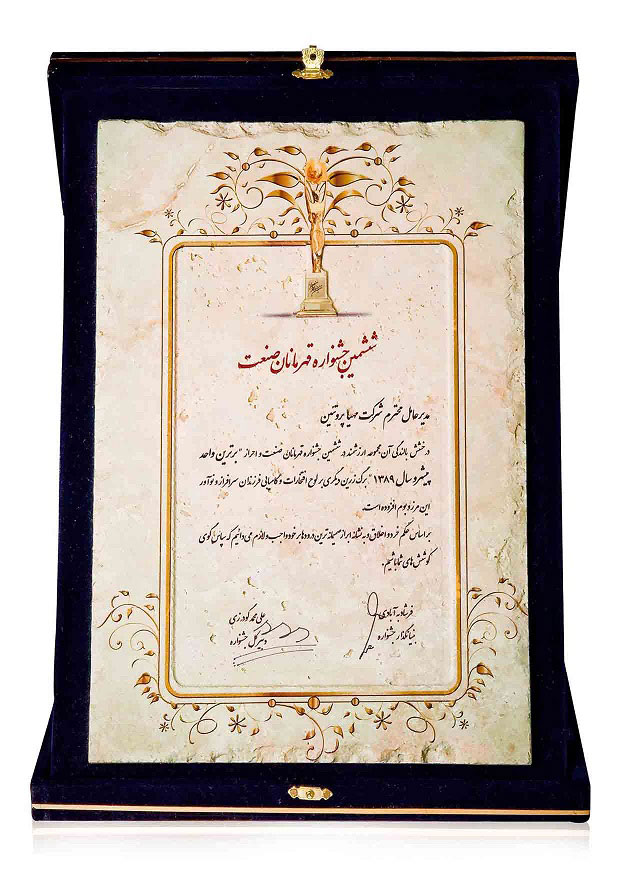 ششمین جشنواره قهرمانان صنعت
مدیر عامل محترم شرکت مهیا پروتئین
درخشش بالندگی آن مجموعه ارزشمند در ششمین جشنواره قهرمانان صنعت و احراز "برترین واحد
پیشرو سال ۱۳۸۹" برگ زرین دیگری بر لوح افتخارات و کامیابی فرزندان سرافراز و نوآور
این مرز و بوم افزوده است.
بر اساس حکم خرد و اخلاق و به نشانه ابراز صمیمانه ترین درودها بر خود واجب و لازم می دانیم که سپاس گوی
کوشش های شما باشیم.
فرشاد به آبادی
بنیانگذار جشنواره
علی محمد گودرزی
دبیر کل جشنواره